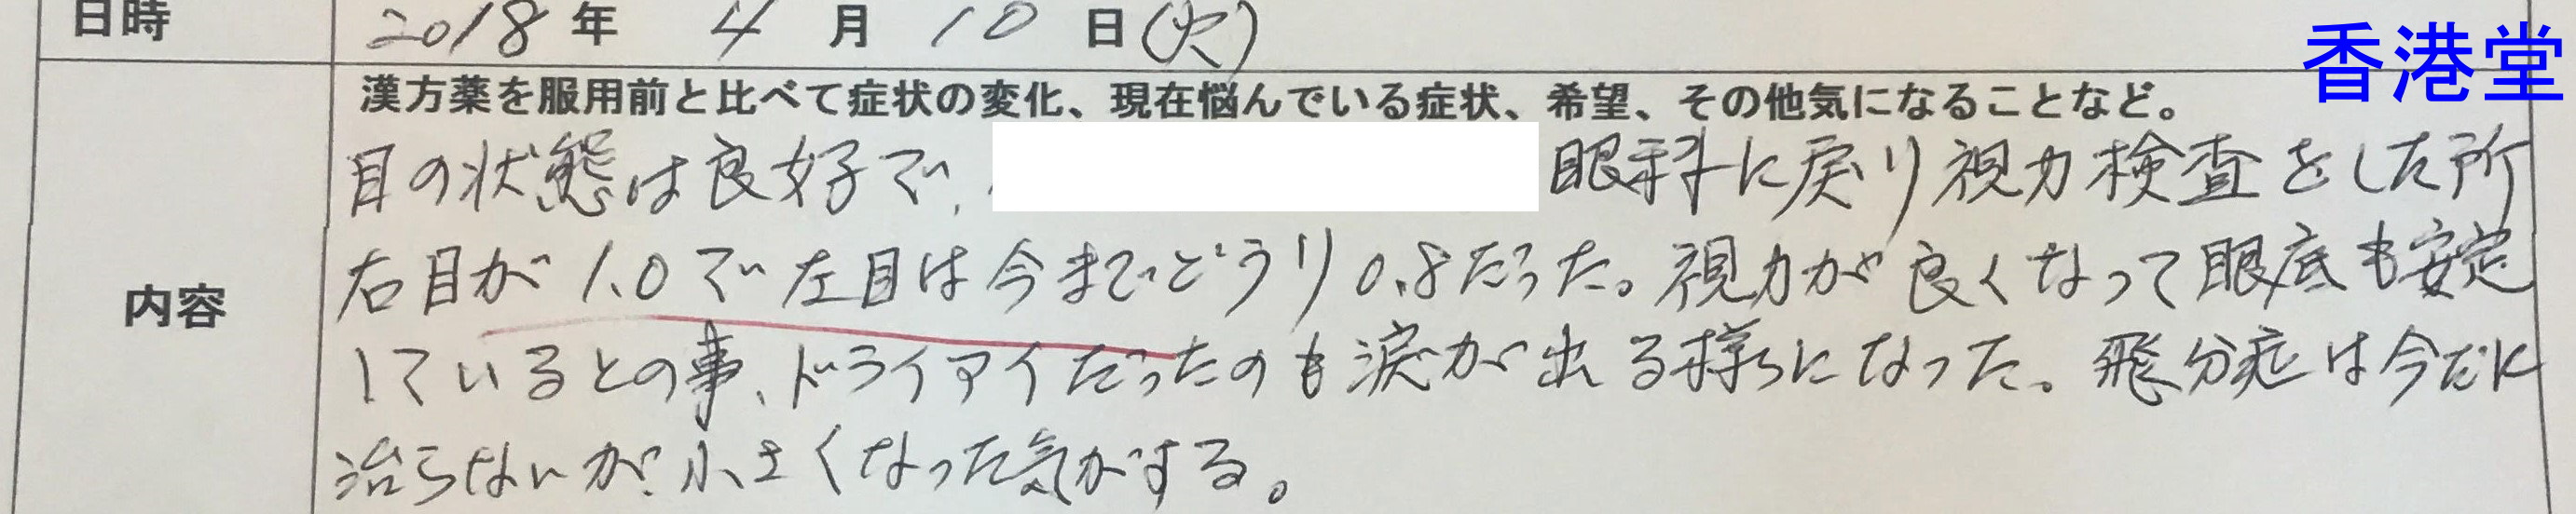 日時 2018 年 4 月 10 日(火)
香港堂
漢方薬を服用前と比べて症状の変化、現在悩んでいる症状、希望、その他気になることなど。
内容
目の状態は良好で、 眼科に戻り視力検査をした所
右目が1.0で左目は今までどうり0.8だった。視力が良くなって眼底も安定
しているとの事、ドライアイだったのも涙が出る様になった。飛分症は今だに
治らないが、小さくなった気がする。